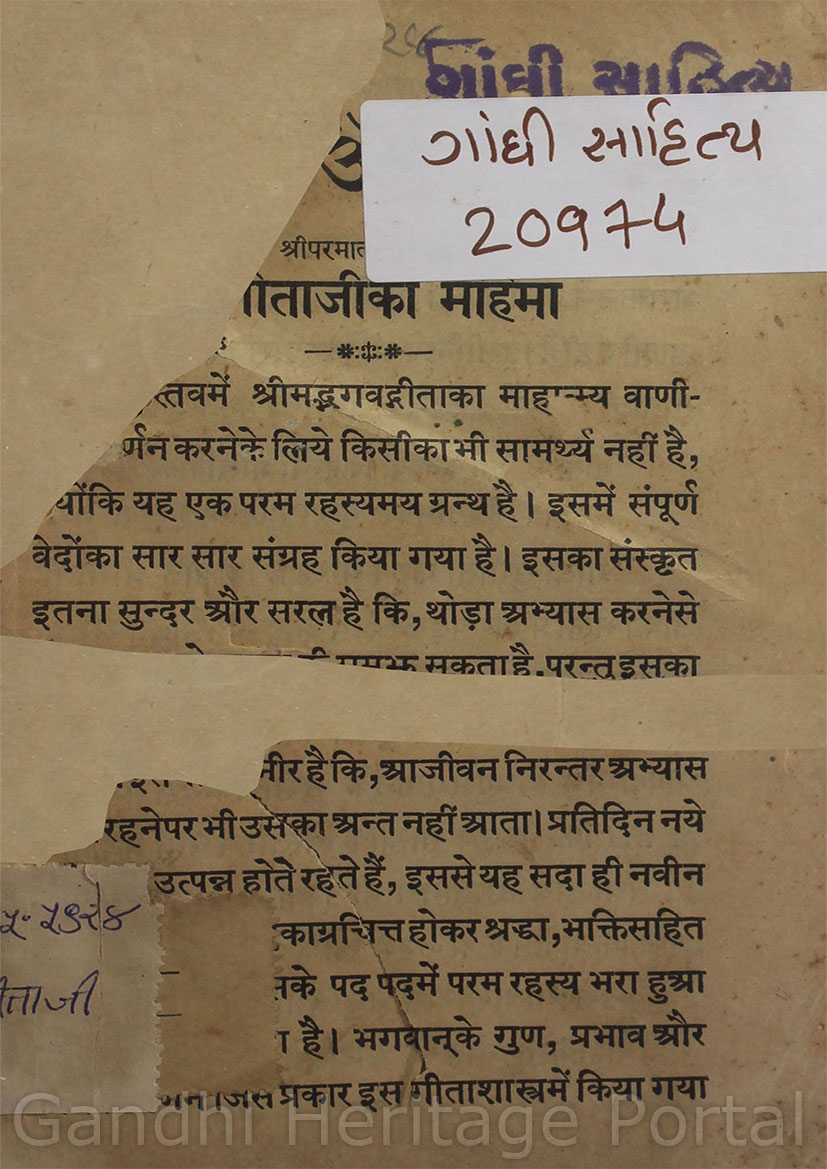 ગાંધી સાહિત્ય
ગાંધી સાહિત્ય
20974
माहिमा
श्रीमद्भगवद्गीताका माहात्म्य वाणी-
करनेके लिये किसीका भी सामर्थ्य नहीं है,
यह एक परम रहस्यमय ग्रन्थ है। इसमें संपूर्ण
वेदोंका सार सार संग्रह किया गया है। इसका संस्कृत
इतना सुन्दर और सरल है कि, थोड़ा अभ्यास करनेसे
सकता है, परन्तु इसका
है कि, आजीवन निरन्तर अभ्यास
रहनेपर भी उसका अन्त नहीं आता। प्रतिदिन नये
उत्पन्न होते रहते हैं, इससे यह सदा ही नवीन
होकर श्रद्धा, भक्तिसहित
पद पदमें परम रहस्य भरा हुआ
है। भगवान्के गुण, प्रभाव और
जिस प्रकार इस गीताशास्त्रमें किया गया
Gandhi Heritage Portal